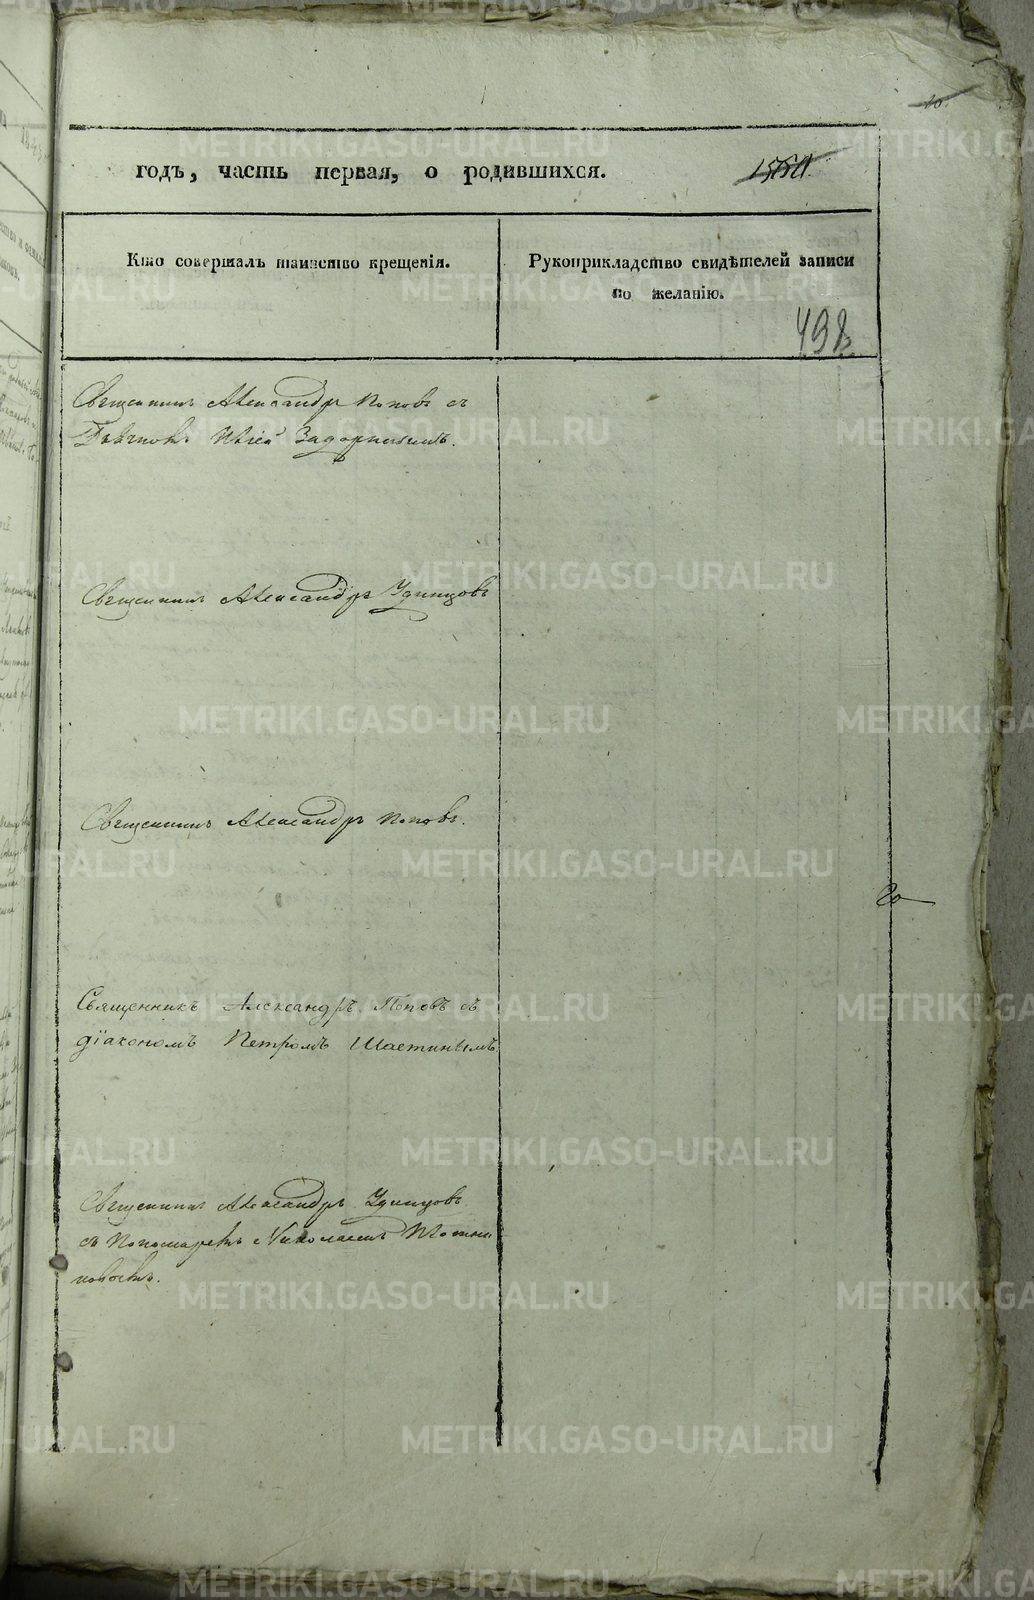 годъ, часть первая, о родившихся.
Кто совершалъ таинство крещенія.
Рукоприкладство свидѣтелей записи
по желанію.
498
Священникъ Александръ Поповъ съ
Задоринымъ.
Священникъ Александръ Удинцовъ
Священникъ Александръ Поповъ.
Священникъ Александръ Поповъ съ
діакономъ Петромъ Шастинымъ
Священникъ Александръ Удинцовъ
съ Пономаремъ Николаемъ
METRIKI.GASO-URAL.RU